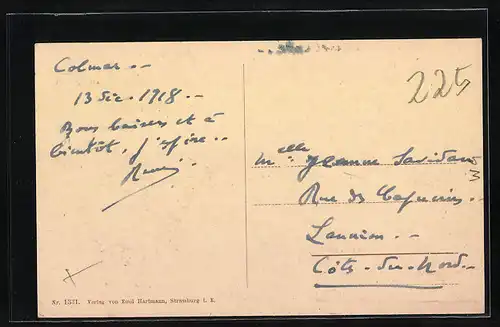 Colmar --
13 Dec. 1918. -
Bons baisers et à
bientôt, j'espère..
225
Melle Jeanne
Rue des Capucins.
Lannion. --
Côtes-du-Nord.-
Nr. 1371. Verlag von Emil Hartmann, Strassburg i. E.